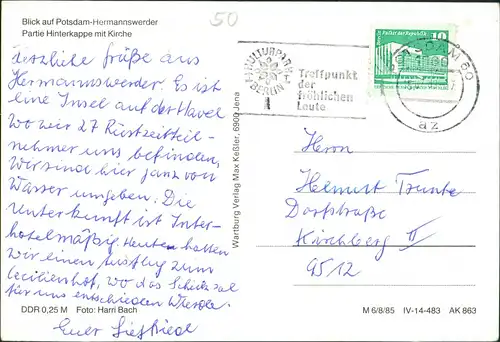 50
Blick auf Potsdam-Hermannswerder
Partie Hinterkappe mit Kirche
Herzliche Grüße aus
Hermannswerder. Es ist
eine Insel auf der Havel
wo wir 27 Rüstzeitteil-
nehmer uns befinden,
Wir sind hier ganz von
Wasser umgeben. Die
Unterkunft ist Inter-
hotelmäßig Heute hatten
wir einen Ausflug zum
Cecilienhof, wo das Schicksal
für uns entschieden wurde.
Euer Siegfried
DDR 0,25 M Foto: Harri Bach
Wartburg Verlag Max Keßler, 6900 Jena
KULTURPARK
BERLIN
Treffpunkt
der
fröhlichen
Leute
10
az
Herrn
Helmut
Dorfstraße
Kirchberg II
9512
M 6/8/85 IV-14-483 AK 863